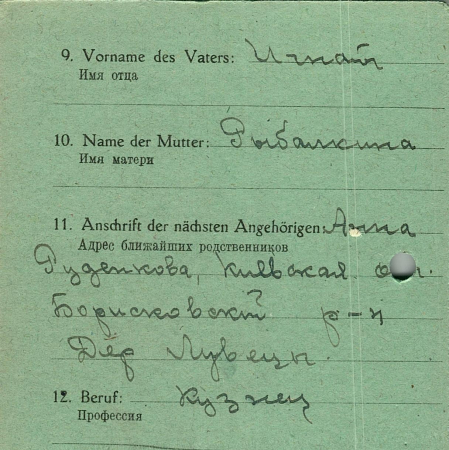 9. Vorname des Vaters: Игнат
Имя отца
10. Name der Mutter: Рыбалкина
Имя матери
11. Anschrift der nächsten Angehörigen: Анна
Адрес ближайших родственников
Руденкова, Киевская
Борисковский ? р-н
Дер Лувецы.
12. Beruf: Кузнец
Профессия